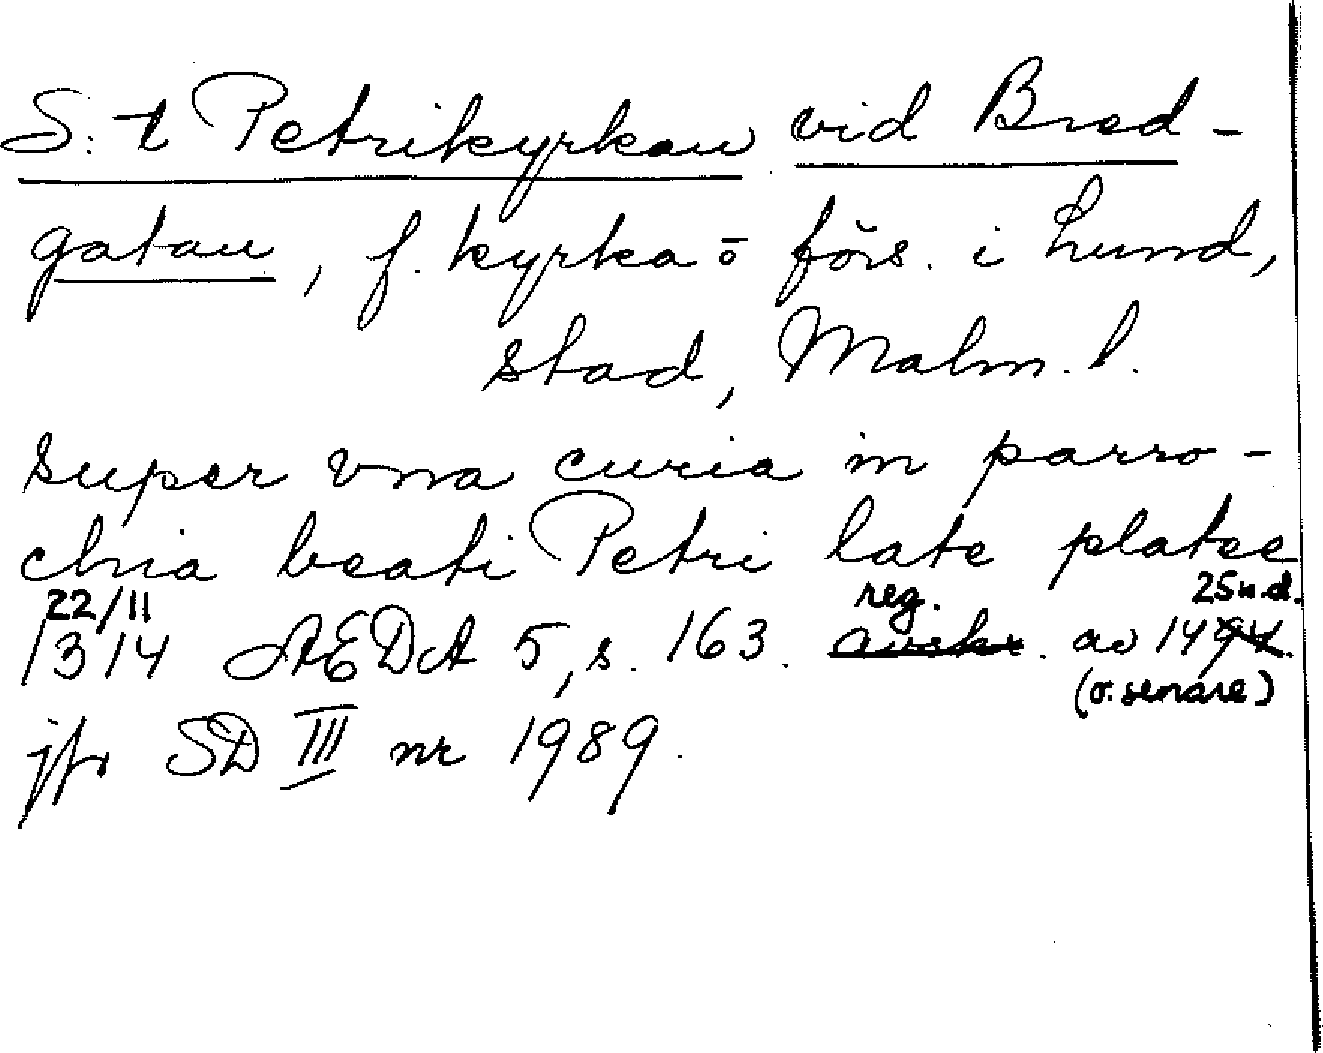 S:t Petrikyrkan vid Bred-
gatan, f. kyrka o förs. i Lund,
stad, Malm. l.
super vna curia in parro-
chia beati Petri late platee
22/11 reg. 25 n.d.
1314 ÆDA 5, s. 163. avskr. av 1494.
(o. senare)
jfr SD III nr 1989.